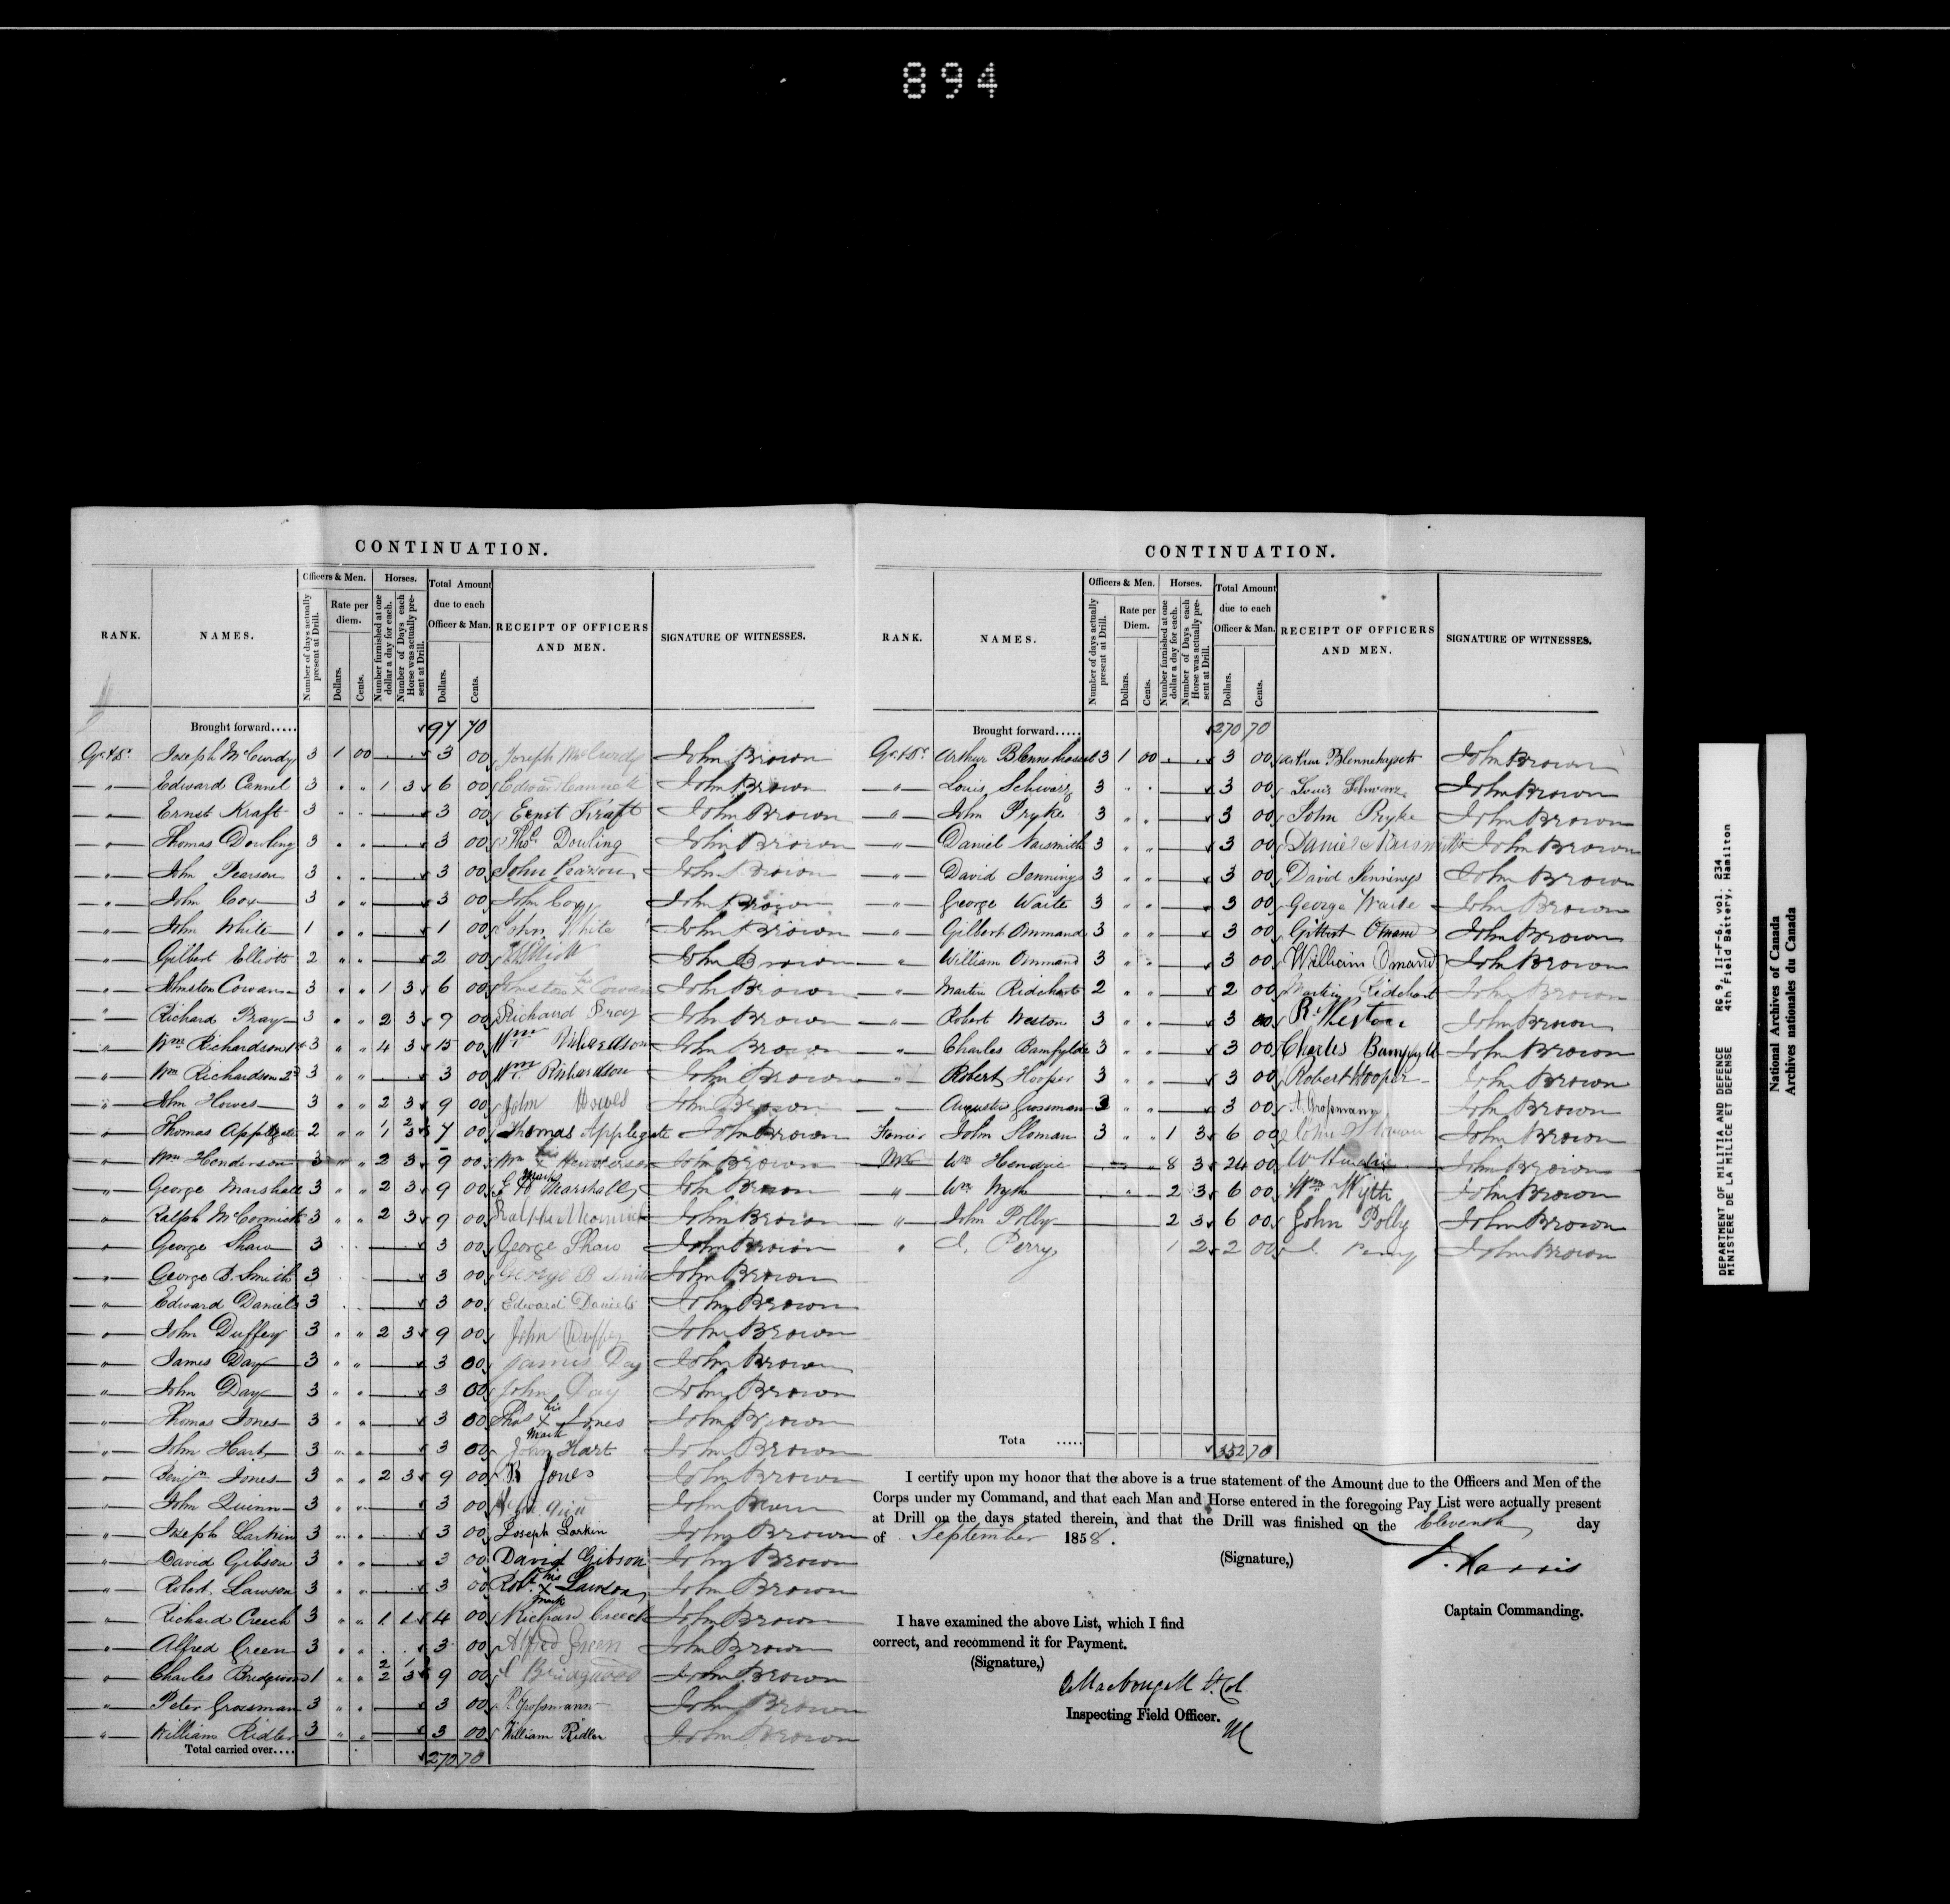 894
CONTINUATION.
RANK. NAMES. Officers & Men. Horses. Total Amount due to each Officer & Man. RECEIPT OF OFFICERS AND MEN. SIGNATURE OF WITNESSES.
Number of days actually present at Drill. Rate per diem. Dollars. Cents. Number furnished at one dollar a day for each. Number of Days each Horse was actually present at Drill. Dollars. Cents.
Brought forward..... 97 70
Joseph McCurdy 3 1 00 3 00 Joseph McCurdy John Brown
" Edward Cannel 3 " " 1 3 6 00 Edward Cannell John Brown
" Ernst Kraft 3 " " 3 00 Ernst Kraft John Brown
" Thomas Dowling 3 " " 3 00 Thos Dowling John Brown
" John Pearson 3 " " 3 00 John Pearson John Brown
" John Cox 3 " " 3 00 John Cox John Brown
" John White 1 " " 1 00 John White John Brown
" Gilbert Elliott 2 " " 2 00 Elliott John Brown
" Johnston Cowan 3 " " 1 3 6 00 Johnston X Cowan John Brown
" Richard Pray 3 " " 2 3 9 00 Richard Pray John Brown
" Wm Richardson 1st 3 " " 4 3 15 00 Wm Richardson John Brown
" Wm Richardson 2d 3 " " 3 00 Wm Richardson John Brown
" John Howes 3 " " 2 3 9 00 John Howes John Brown
" Thomas Applegate 2 " " 7 00 Thomas Applegate John Brown
" Wm Henderson 3 " " 2 3 9 00 Wm his X mark Henderson John Brown
" George Marshall 3 " " 2 3 9 00 Marshall John Brown
" Ralph McCormick 3 " " 2 3 9 00 Ralph McCormick John Brown
" George Shaw 3 3 00 George Shaw John Brown
" George B. Smith 3 3 00 George B Smith John Brown
" Edward Daniels 3 3 00 Edward Daniels John Brown
" John Duffey 3 " " 2 3 9 00 John Duffey John Brown
" James Day 3 " " 3 00 James Day John Brown
" John Day 3 " " 3 00 John Day John Brown
" Thomas Jones 3 " " 3 00 Thos his X mark Jones John Brown
" John Hart 3 " " 3 00 John Hart John Brown
" Benjn Jones 3 " " 2 3 9 00 B Jones John Brown
" John Quinn 3 " " 3 00 John Brown
" Joseph Larkin 3 " " 3 00 Joseph Larkin John Brown
" David Gibson 3 " " 3 00 David Gibson John Brown
" Robert Lawson 3 " " 3 00 Robt his X mark Lawson John Brown
" Richard Creech 3 " " 1 1 4 00 Richard Creech John Brown
" Alfred Green 3 " " 3 00 Alfred Green John Brown
" Charles Bridgwood 1 " " 9 00 C Bridgwood John Brown
" Peter Grossman 3 " " 3 00 P. Grossmann John Brown
" William Ridler 3 " " 3 00 William Ridler John Brown
Total carried over.... 270 70
CONTINUATION.
RANK. NAMES. Officers & Men. Horses. Total Amount due to each Officer & Man. RECEIPT OF OFFICERS AND MEN. SIGNATURE OF WITNESSES.
Number of days actually present at Drill. Rate per Diem. Dollars. Cents. Number furnished at one dollar a day for each. Number of Days each Horse was actually present at Drill. Dollars. Cents.
Brought forward..... 270 70
Arthur Blennehasset 3 1 00 3 00 Arthur Blennehassett John Brown
" Louis Schwarz 3 " " 3 00 Louis Schwarz John Brown
" John Pryke 3 " " 3 00 John Pryke John Brown
" Daniel Naismith 3 " " 3 00 Daniel Naismith John Brown
" David Jennings 3 " " 3 00 David Jennings John Brown
" George Waite 3 " " 3 00 George Waite John Brown
" Gilbert Ommand 3 " " 3 00 Gilbert Omand John Brown
" William Ommand 3 " " 3 00 William Omand John Brown
" Martin Ridehart 2 " " 2 00 Martin Ridehart John Brown
" Robert Weston 3 " " 3 00 R. Weston John Brown
" Charles Bamfylde 3 " " 3 00 Charles Bampfyld John Brown
" Robert Hooper 3 " " 3 00 Robert Hooper John Brown
Augustus Grossman 3 " " 3 00 A. Grossmann John Brown
Farrier John Sloman 3 " " 1 3 6 00 John Sloman John Brown
Wm Hendrie 8 3 24 00 Wm Hendrie John Brown
" Wm Wyth 2 3 6 00 Wm Wyth John Brown
" John Polby 2 3 6 00 John Polby John Brown
" Perry 1 2 2 00 Perry John Brown
Tota ..... 352 70
I certify upon my honor that the above is a true statement of the Amount due to the Officers and Men of the
Corps under my Command, and that each Man and Horse entered in the foregoing Pay List were actually present
at Drill on the days stated therein, and that the Drill was finished on the Eleventh day
of September 1858.
(Signature,) Harris
Captain Commanding.
I have examined the above List, which I find
correct, and recommend it for Payment.
(Signature,)
MacDougall Lt. Col.
Inspecting Field Officer.
DEPARTMENT OF MILITIA AND DEFENCE RG 9, II-F-6, vol. 234
MINISTERE DE LA MILICE ET DEFENSE 4th Field Battery, Hamilton
National Archives of Canada
Archives nationales du Canada